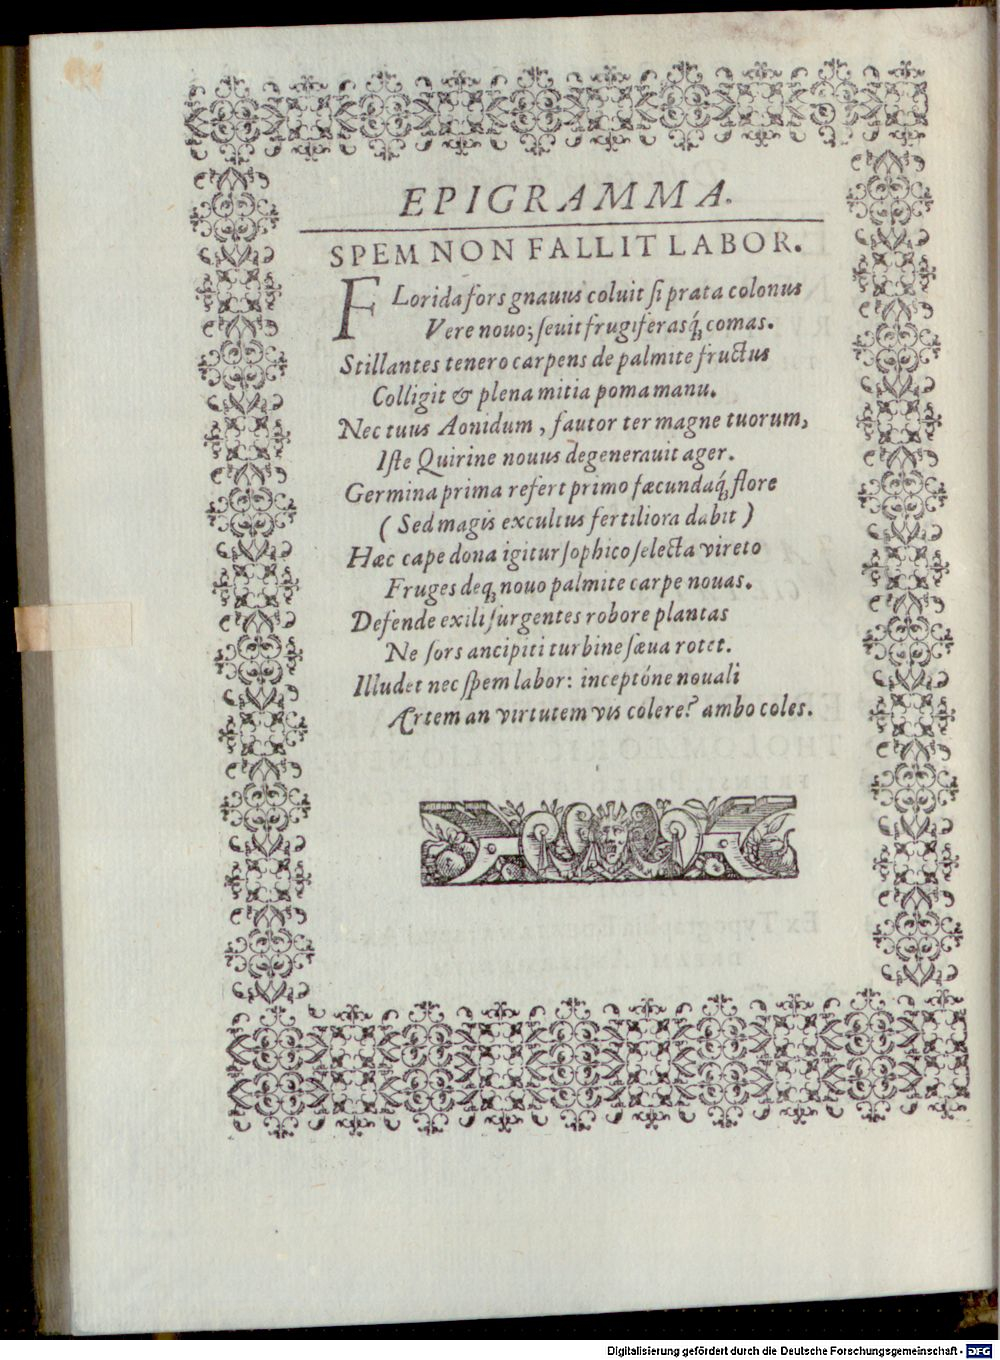 EPIGRAMMA.
SPEM NON FALLIT LABOR.
FLorida fors gnauus coluit ſi prata colonus
Vere nouo; ſeuit frugiferasq́; comas.
Stillantes tenero carpens de palmite fructus
Colligit & plena mitia poma manu.
Nec tuus Aonidum, fautor ter magne tuorum,
Iſte Quirine nouus degenerauit ager.
Germina prima refert primo fæcundaq́; flore
(Sed magis excultus fertiliora dabit)
Hæc cape dona igitur ſophico ſelecta vireto
Fruges deq; nouo palmite carpe nouas.
Defende exili ſurgentes robore plantas
Ne ſors ancipiti turbine ſæua rotet.
Illudet nec ſpem labor: inceptóne nouali
Artem an virtutem vis colere? ambo coles.
Digitalisierung gefördert durch die Deutsche Forschungsgemeinschaft - DFG